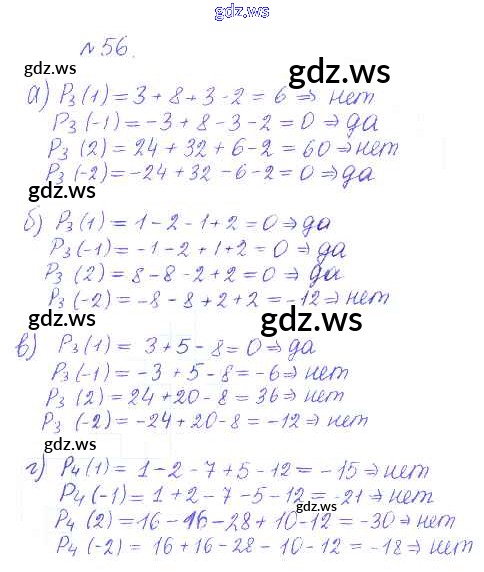 gdz.ws
№56.
gdz.ws
gdz.ws
а) P₃(1) = 3 + 8 + 3 - 2 = 6 ⇒ нет
P₃(-1) = -3 + 8 - 3 - 2 = 0 ⇒ да
P₃(2) = 24 + 32 + 6 - 2 = 60 ⇒ нет
P₃(-2) = -24 + 32 - 6 - 2 = 0 ⇒ да
gdz.ws
gdz.ws
б) P₃(1) = 1 - 2 - 1 + 2 = 0 ⇒ да
P₃(-1) = -1 - 2 + 1 + 2 = 0 ⇒ да
P₃(2) = 8 - 8 - 2 + 2 = 0 ⇒ да
P₃(-2) = -8 - 8 + 2 + 2 = -12 ⇒ нет
gdz.ws
gdz.ws
в) P₃(1) = 3 + 5 - 8 = 0 ⇒ да
P₃(-1) = -3 + 5 - 8 = -6 ⇒ нет
P₃(2) = 24 + 20 - 8 = 36 ⇒ нет
P₃(-2) = -24 + 20 - 8 = -12 ⇒ нет
gdz.ws
г) P₄(1) = 1 - 2 - 7 + 5 - 12 = -15 ⇒ нет
P₄(-1) = 1 + 2 - 7 - 5 - 12 = -21 ⇒ нет
P₄(2) = 16 - 16 - 28 + 10 - 12 = -30 ⇒ нет
P₄(-2) = 16 + 16 - 28 - 10 - 12 = -18 ⇒ нет
gdz.ws